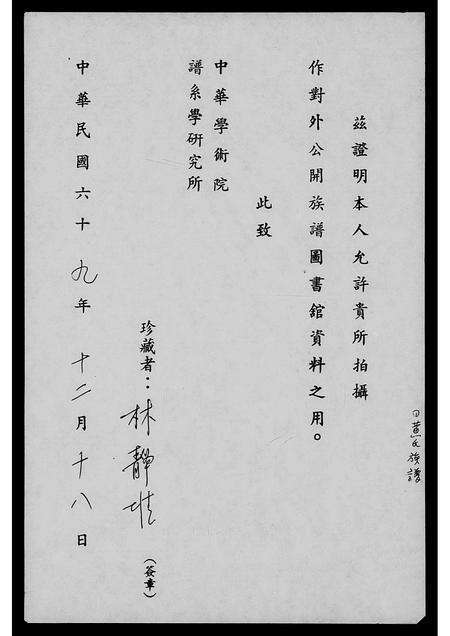 茲證明本人允許貴所拍攝
作對外公開族譜圖書館資料之用。
此致
中華學術院
譜系學研究所
珍藏者：林靜
（簽章）
中華民國六十九年十二月十八日
黃氏族譜